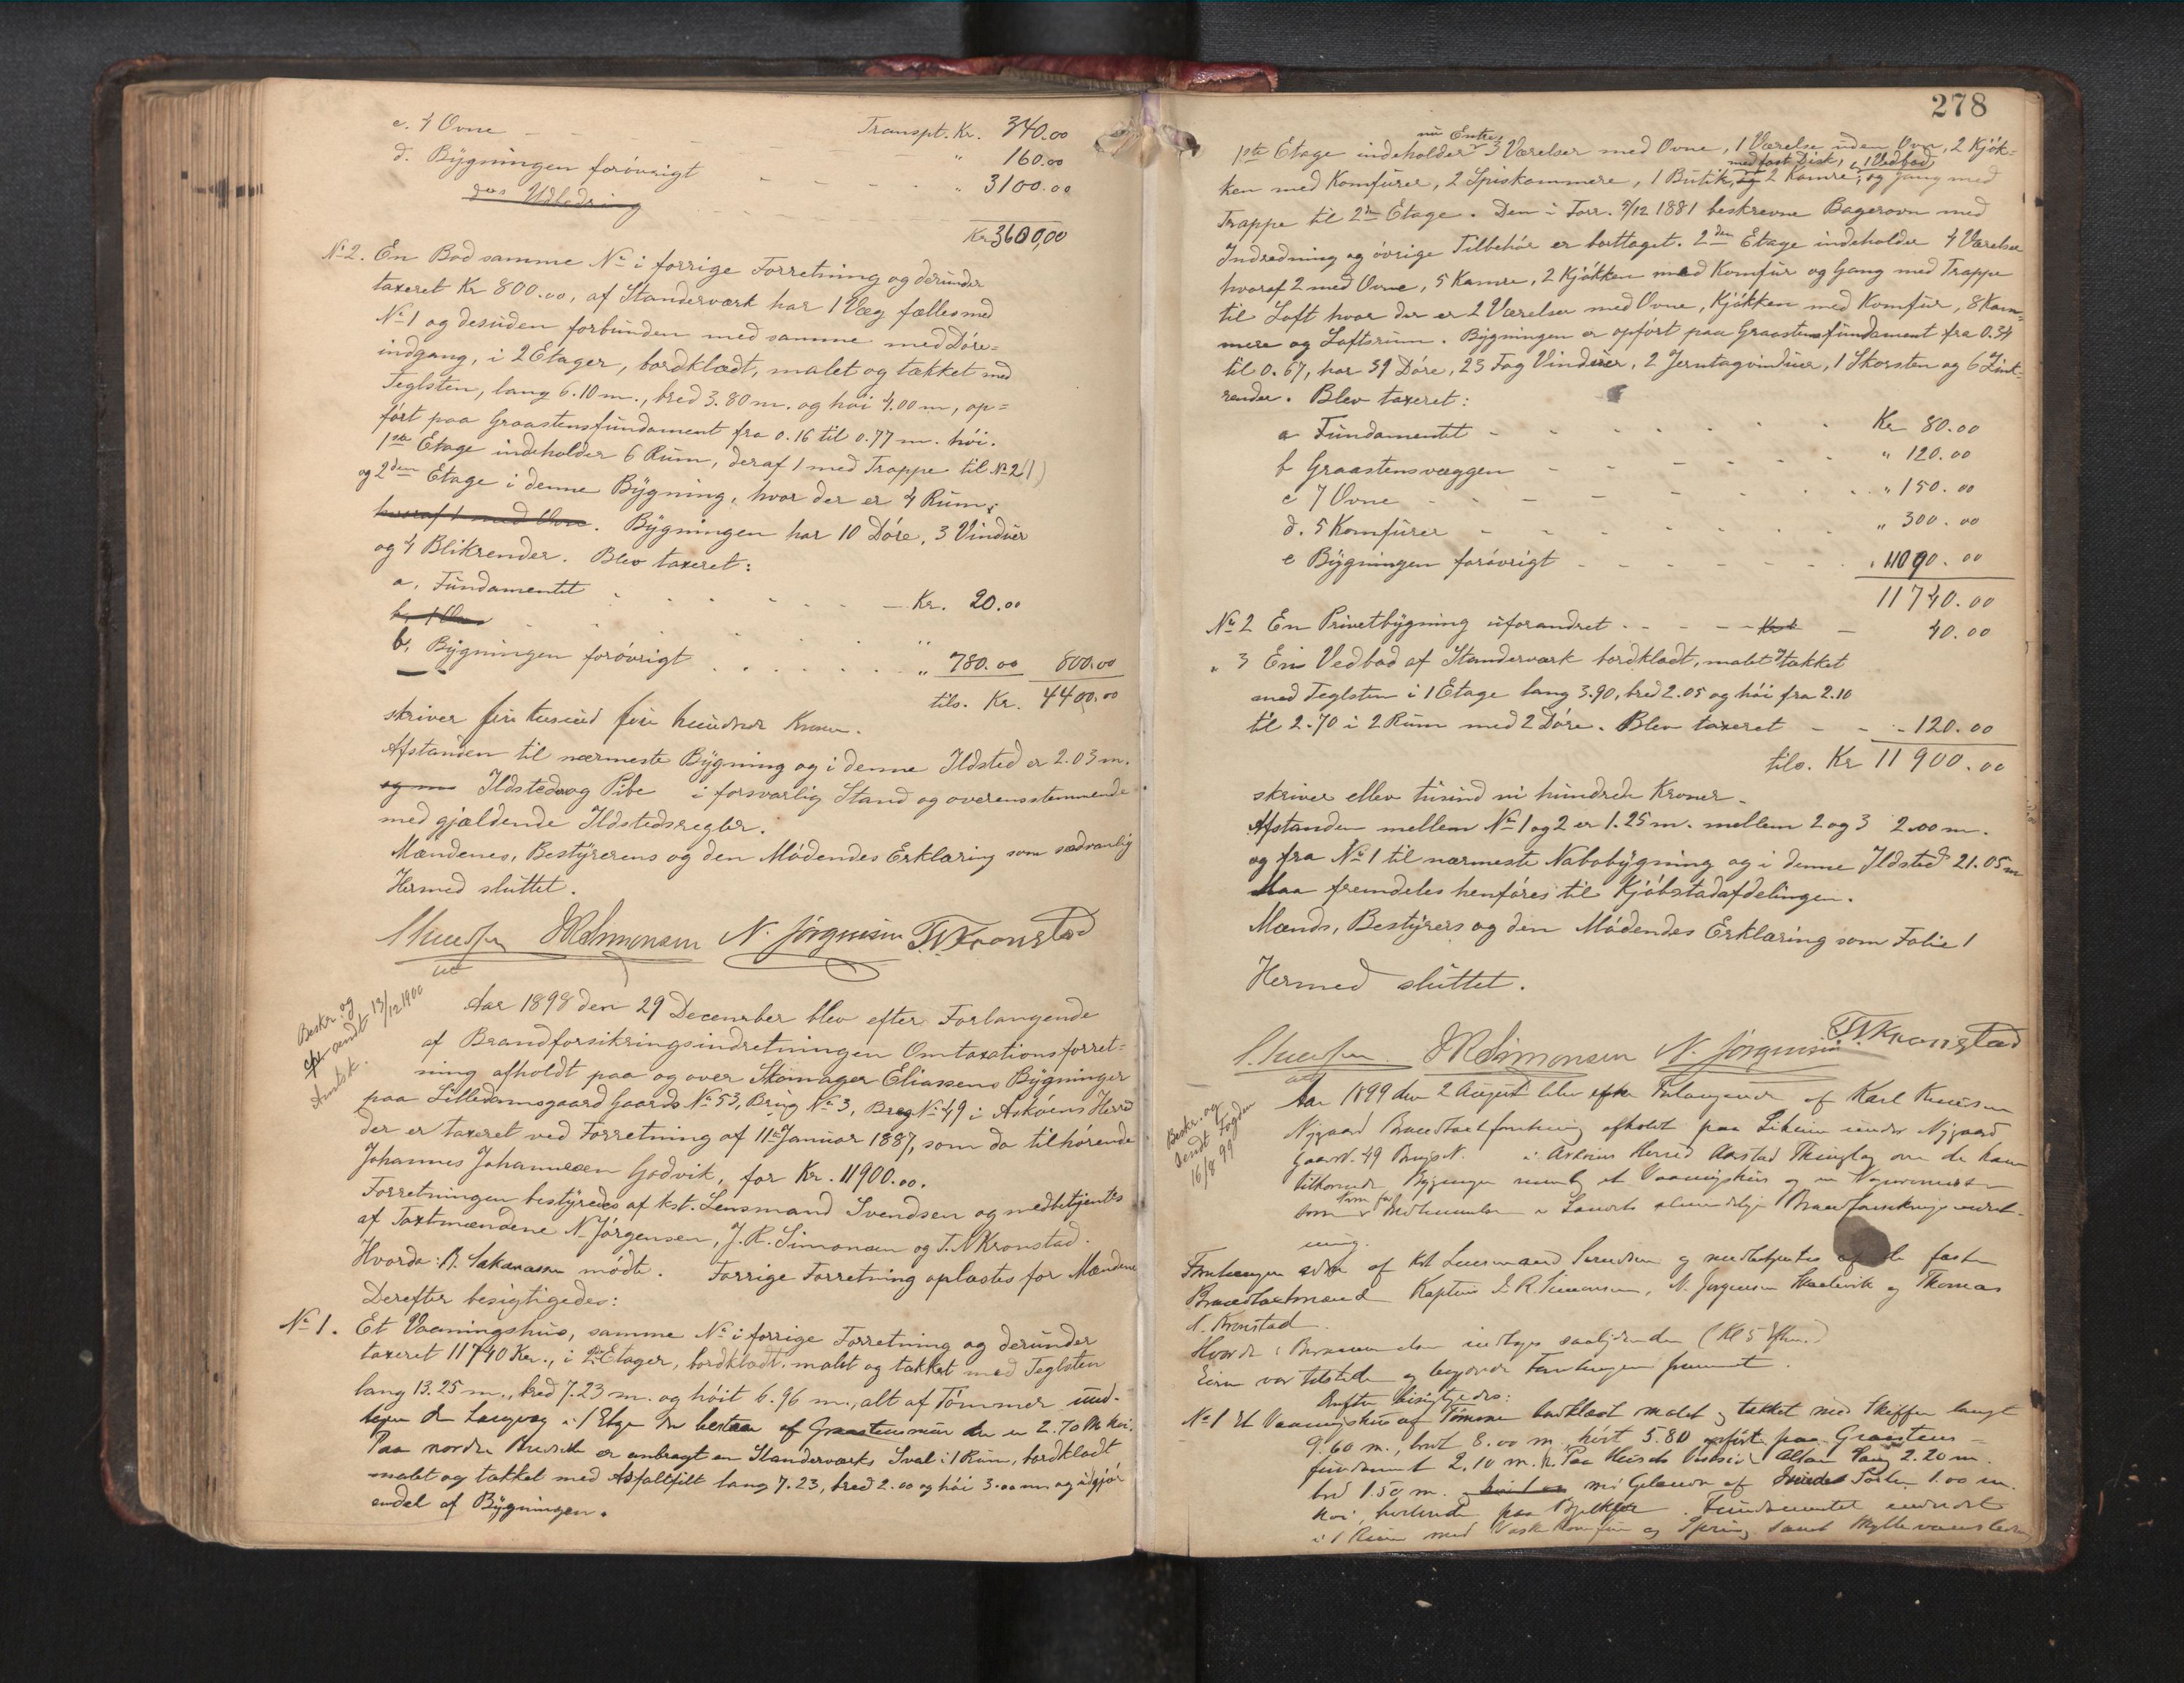 Transpt. Kr. 340.00
c. 4 Ovne " 160.00
d. Bygningen forøvrigt " 3100.00
Udbedring
Kr. 3600,00
No 2. En Bod samme No i forrige Forretning og derunder
taxeret Kr 800.00, af Standerværk har 1 Væg fælles med
No 1 og desuden forbunden med samme med Døre-
indgang, i 2 Etager, bordklædt, malet og tækket med
Teglsten, lang 6.10 m., bred 3.80 m. og høi 4.00 m, op=
ført paa Graastensfundament fra 0.16 til 0.77 m. høi.
1ste Etage indeholder 6 Rum, deraf 1 med Trappe til No 2(1)
og 2den Etage i denne Bygning, hvor der er 4 Rum,
hvoraf 1 med Ovn. Bygningen har 10 Døre, 3 Vinduer
og 4 Blikrender. Blev taxeret:
a. Fundamentet Kr. 20.00
b. 1 Ovn "
b, Bygningen forøvrigt " 780.00 800.00
tils. Kr. 4400.00
skriver fire tusind fire hundrede Kroner.
Afstanden til nærmeste Bygning og i denne Ildsted er 2.03 m.
Ildsted og Pibe i forsvarlig Stand og overensstemmende
med gjældende Ildstedsregler.
Mændenes, Bestyrerens og den Mødendes Erklæring som sædvanlig
Hermed sluttet.
JRSimonsen N. Jørgensen T.N.Kronstad
Beskr. og
sendt 13/12 1900
Amtsk.
Aar 1898 den 29 December blev efter Forlangende
af Brandforsikringsindretningen Omtaxationsforret=
ning afholdt paa og over Skomager Eliassens Bygninger
paa Lilledamsgaard Gaards No 53, Brug No 3, Brug No 49 i Askøens Herred
der er taxeret ved Forretning af 11te Januar 1887, som da tilhørende
Johannes Johannesen Godvik, for Kr. 11900.00.
Forretningen bestyredes af kst. Lensmand Svendsen og medbetjentes
af Taxtmændene N. Jørgensen, J. R. Simonsen og T. N Kronstad.
Hvorda: B. Sakariassen mødte. Forrige Forretning oplæstes for Mændene
Derefter besigtigedes:
No 1. Et Vaaningshus, samme No i forrige Forretning og derunder
taxeret 11740 Kr., i 2 Etager, bordklædt, malet og tækket med Teglsten
lang 13.25 m., bred 7.23 m. og høit 6.96 m., alt af Tømmer und-
tagen den Langvæg i 1 Etage der bestaar af Graastensmur der er 2.70 M høi.
Paa nordre er anbragt en Standerværks Sval i 1 Rum, bordklædt
malet og tækket med Asfaltfilt lang 7.23, bred 2.00 og høi 3.00 m og udgjør
endel af Bygningen.
278
1ste Etage indeholder nu Entre, 3 Værelser med Ovne, 1 Værelse uden Ovn, 2 Kjøk=
ken med Komfurer, 2 Spiskammere, 1 Butik, med fast Disk, og 2 Kamre, 1 Vedbod, og Gang med
Trappe til 2den Etage. Den i Forr. 9/12 1881 beskrevne Bagerovn med
Indredning og øvrige Tilbehør er borttaget. 2den Etage indeholder 4 Værelser
hvoraf 2 med Ovne, 5 Kamre, 2 Kjøkken med Komfur og Gang med Trappe
til Loft hvor der er 2 Værelser med Ovne, Kjøkken med Komfur, 8 Kam=
mere og Loftsrum. Bygningen er opført paa Graastensfundament fra 0.34
til 0.67, har 39 Døre, 23 Fag Vinduer, 2 Jerntagvinduer, 1 Skorsten og 6 Zink=
render. Blev taxeret:
a Fundamentet Kr 80.00
b Graastensvæggen " 120.00
c 7 Ovne " 150.00
d. 5 Komfurer " 300.00
e Bygningen forøvrigt " 11090.00
11740.00
No 2 En Privetbygning uforandret 40.00
" 3 En Vedbod af Standerværk bordklædt, malet & tækket
med Teglsten i 1 Etage lang 3.90, bred 2.05 og høi fra 2.10
til 2.70 i 2 Rum med 2 Døre. Blev taxeret 120.00
tils. Kr 11900.00
skriver ellev tusind ni hundrede Kroner.
Afstanden mellem No 1 og 2 er 1.25 m. mellem 2 og 3 2.00 m.
og fra No 1 til nærmeste Nabobygning og i denne Ildsted 21.05 m
Maa fremdeles henføres til Kjøbstadafdelingen.
Mænds, Bestyrers og den Mødendes Erklæring som Folie 1
Hermed sluttet.
JRSimonsen N. Jørgensen T.N.Kronstad
Beskr. og
sendt Fogden
16/8 99
Aar 1899 den 2 August blev efter Forlangende af Karl Knudsen
Nygaard Brandtaxtforretning afholdt paa under Nygaard
Gaards N. 49 Brugs N. i Askøens Herred Aarstad Thinglag over de ham
tilhørende Bygninger nemlig et Vaaningshus og en
som for Bedømmelse i Landets almindelige Brandforsikringsindret-
ning.
Forretningen af Kst Lensmand Svendsen og medbetjentes af de faste
Brandtaxtmænd Kaptein J. R. Simonsen, N. Jørgensen og Thomas
N. Kronstad.
Hvorda: (Kl 5 Efterm.)
Eieren var tilstede og begjærede Forretningen fremmet.
Derefter besigtigedes:
No 1 Et Vaaningshus af Tømmer bordklædt malet og tækket med Skiffer langt
9.60 m., bredt 8.00 m, høit 5.80 opført paa Graastens-
fundament 2.10 m. h. Paa Husets Altan lang 2.20 m.
bred 1.50 m. med Gelænder af 1.00 m.
høi, paa Bjelker. Fundamentet indredet
i 1 Rum med Vaskekomfur og Spring samt